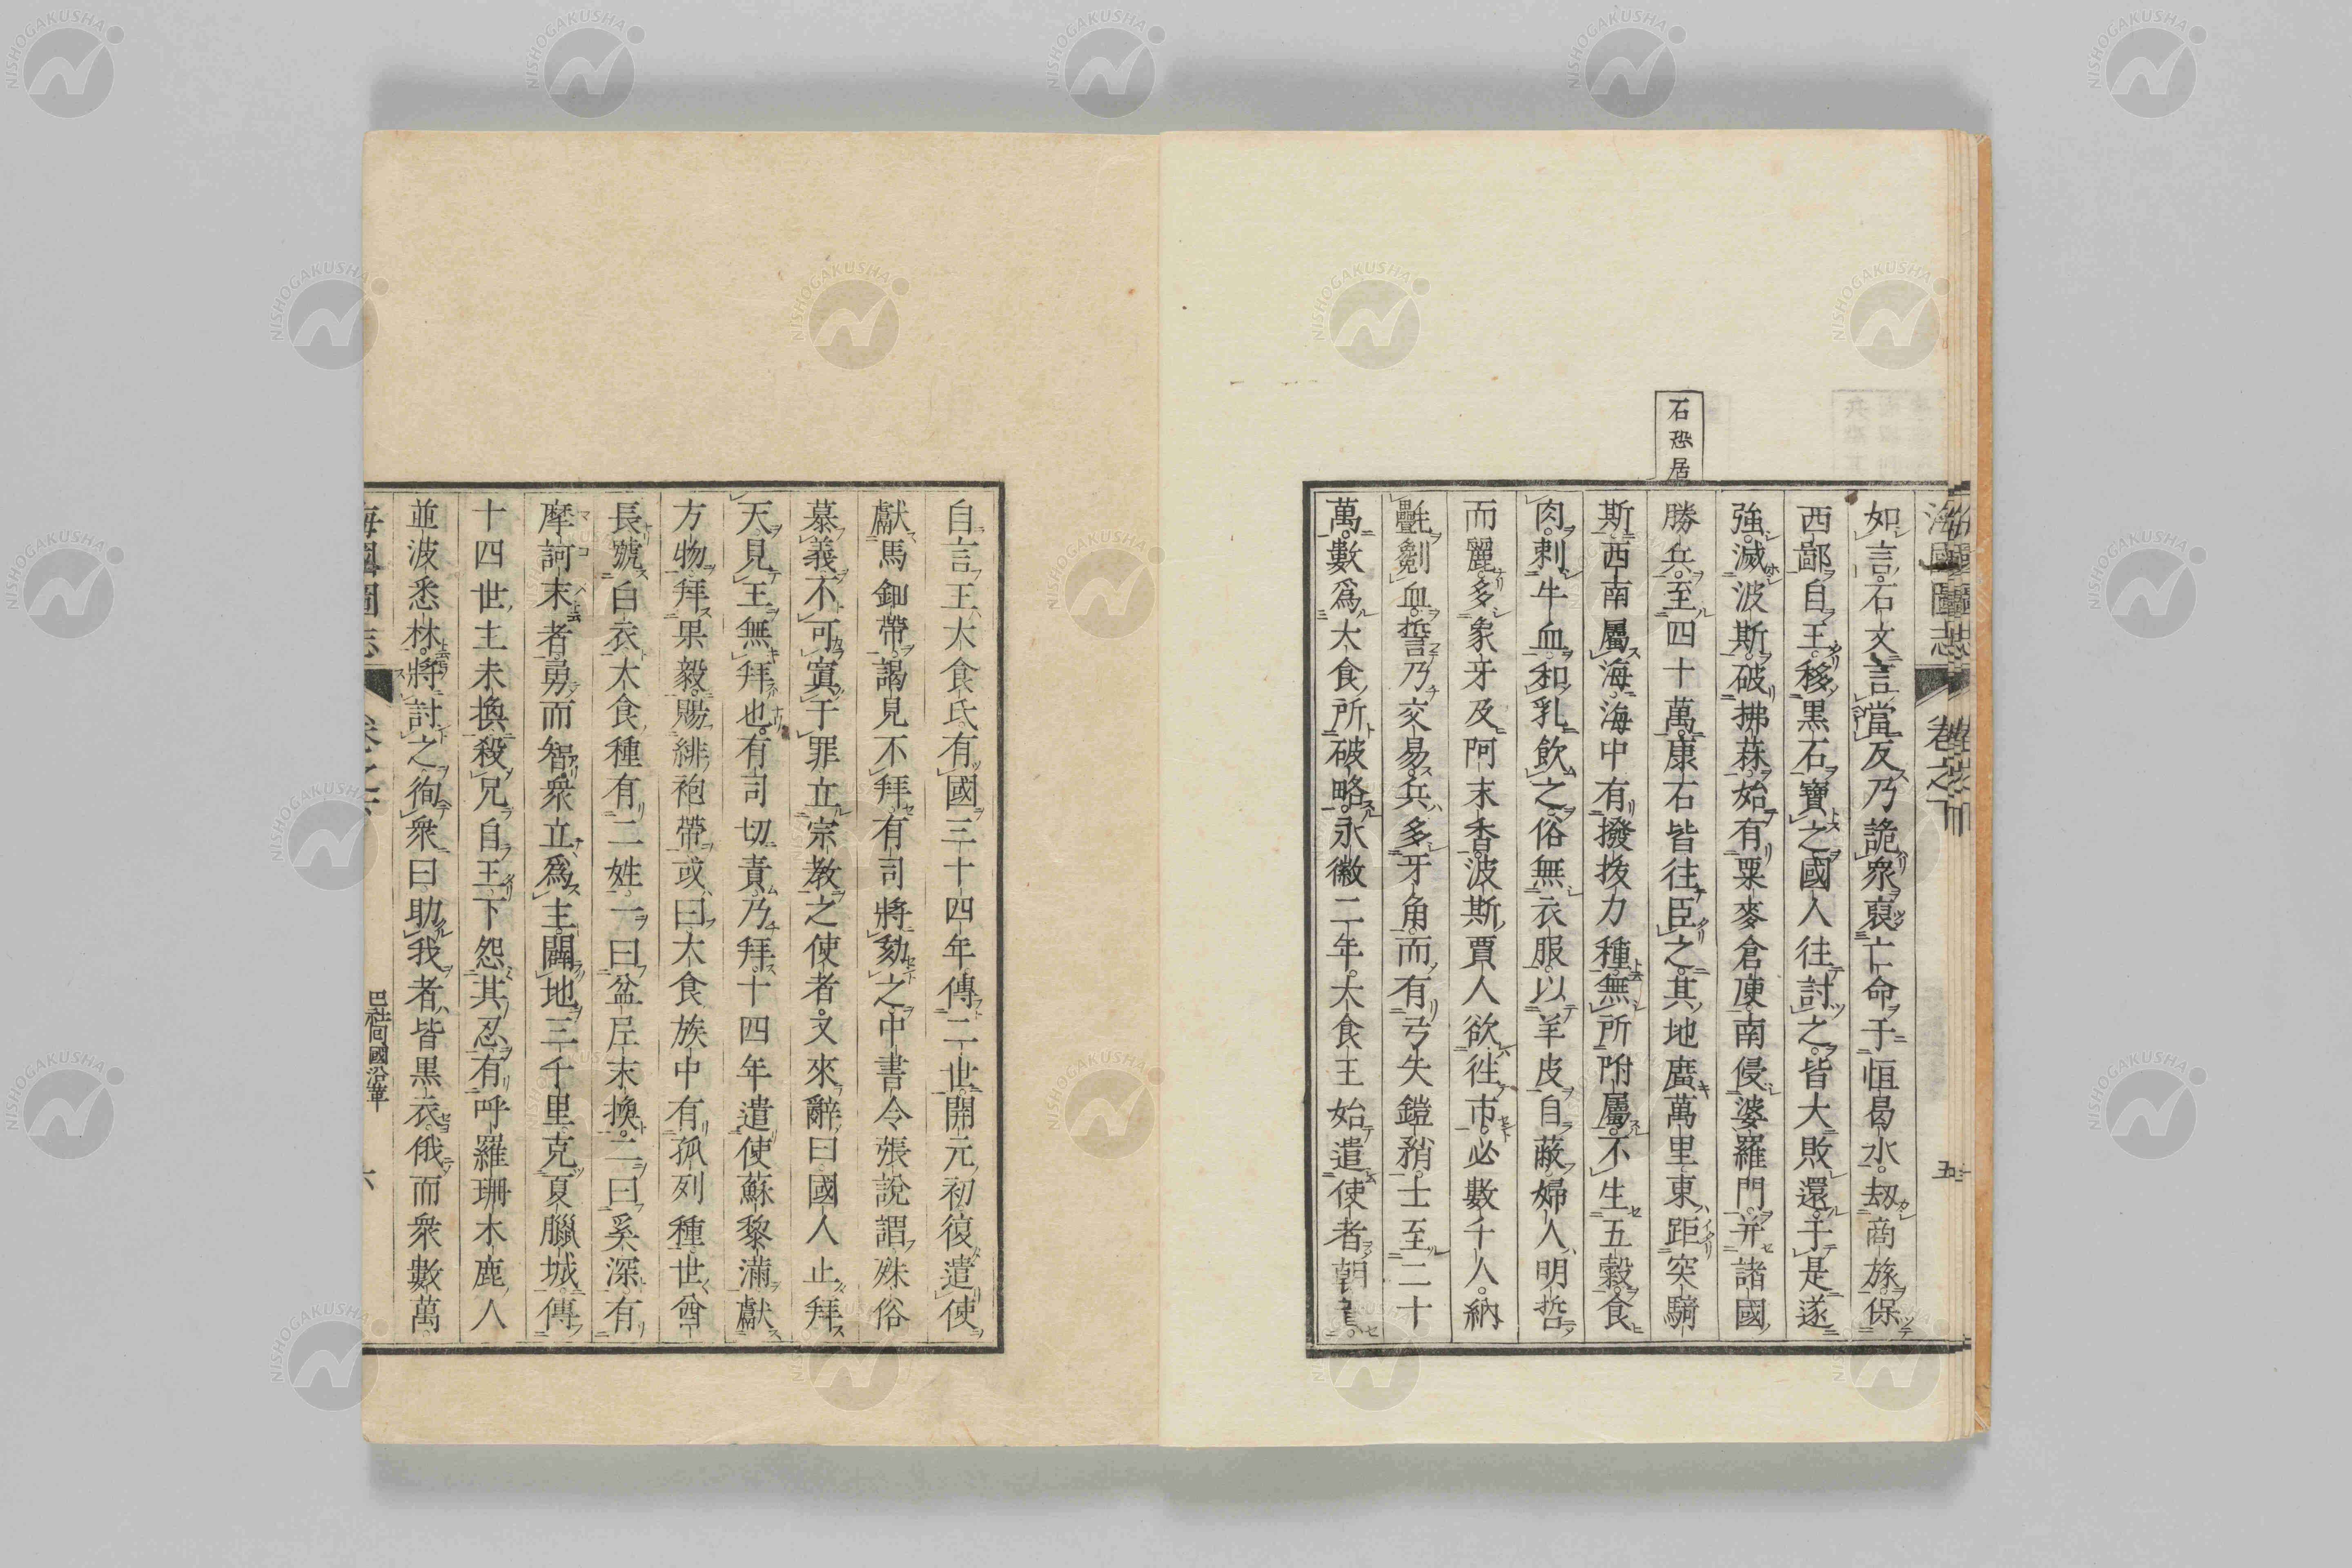 海國圖志 卷之下 五
如言石文言當反乃詭衆裒亡命于恒曷水刼商旅保
西鄙自王移黑石寶之國人往討之皆大敗還于是遂
強滅波斯破拂菻始有粟麥倉庾南侵婆羅門并諸國
石恐居
勝兵至四十萬康石皆往臣之其地廣萬里東距突騎
斯西南屬海海中有撥拔力種無所附屬不生五穀食
肉刺牛血和乳飲之俗無衣服以羊皮自蔽婦人明晢
而麗多象牙及阿末香波斯賈人欲往市必數千人納
氎劙血誓乃交易兵多牙角而有弓失鎧矟士至二十
萬數爲大食所破略永徽二年大食王始遣使者朝
自言王大食氏有國三十四年傳二世開元初復遣使
獻馬鈿帶謁見不拜有司將劾之中書令張說謂殊俗
慕義不可寘于罪立宗教之使者又來辭曰國人止拜
天見王無拜也有司切責乃拜十四年遣使蘇黎滿獻
方物拜果毅賜緋袍帶或曰大食族中有孤列種世酋
長號白衣大食種有二姓一曰盆尼末換二曰奚深有
摩訶末者勇而智衆立爲主闢地三千里克夏臘城傳
十四世主未換殺兄自王下怨其忍有呼羅珊木鹿人
並波悉林將討之徇衆曰助我者皆黑衣俄而衆數萬
海國圖志 巴社回國沿革 六
NISHOGAKUSHA